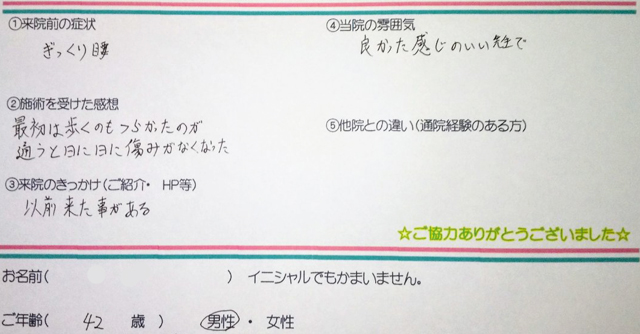 ①来院前の症状
ぎっくり腰
②施術を受けた感想
最初は歩くのもつらかったのが
通うと日に日に傷みがなくなった
③来院のきっかけ(ご紹介・ HP等)
以前来た事がある
④当院の雰囲気
良かった感じのいい先生で
⑤他院との違い(通院経験のある方)
☆ご協力ありがとうございました☆
お名前( ) イニシャルでもかまいません。
ご年齢( 42 歳 ) 男性 ・ 女性